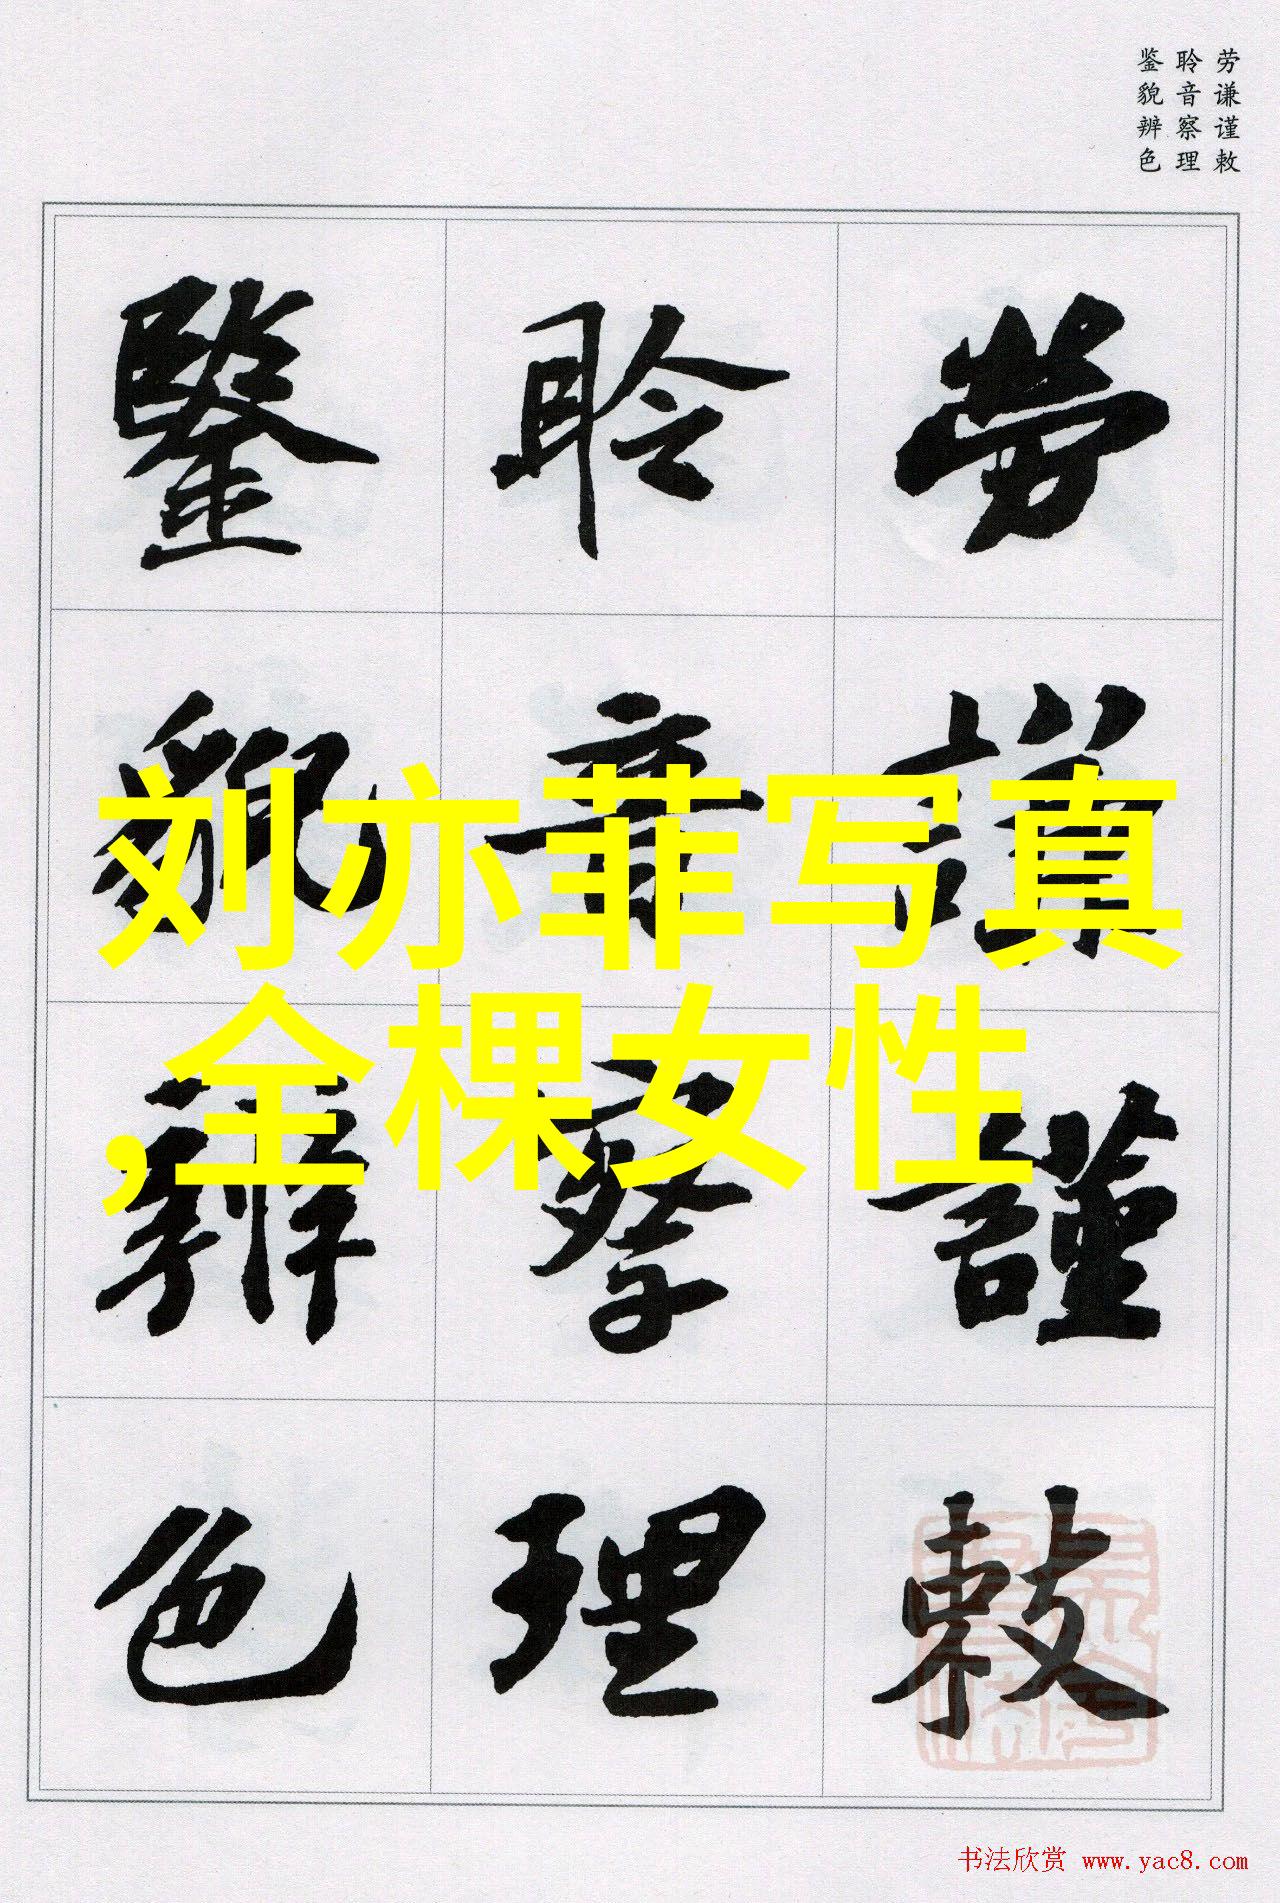 劳谦谨敕
聆音察理
鉴貌辨色
勞謙謹敕
聆音察理
鑒貌辨色
刘亦菲写真
,全棵女性
书法欣赏 www.yac8.com